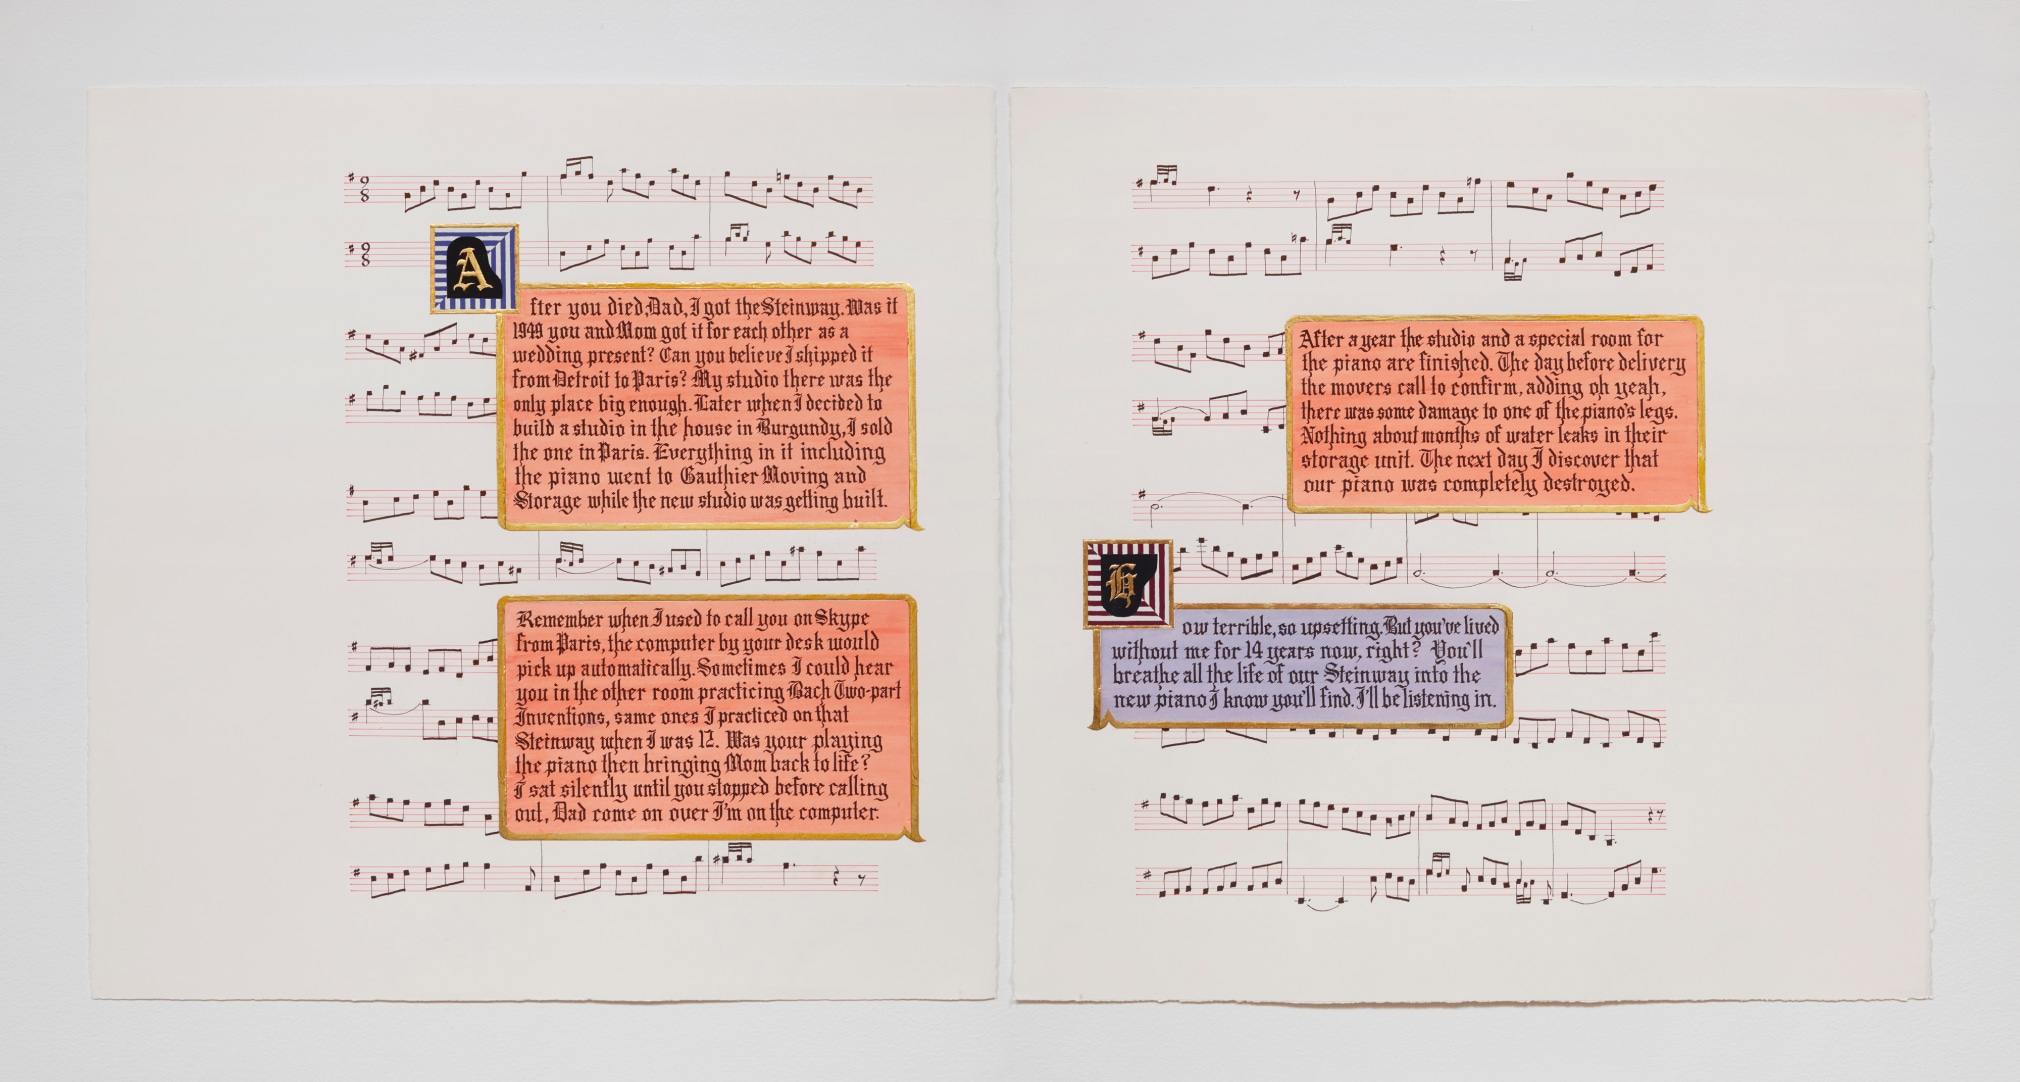 After you died, Dad, I got the Steinway. Was it
1949 you and Mom got it for each other as a
wedding present? Can you believe I shipped it
from Detroit to Paris? My studio there was the
only place big enough. Later when I decided to
build a studio in the house in Burgundy, I sold
the one in Paris. Everything in it including
the piano went to Gauthier Moving and
Storage while the new studio was getting built.
Remember when I used to call you on Skype
from Paris, the computer by your desk would
pick up automatically. Sometimes I could hear
you in the other room practicing Bach Two-part
Inventions, same ones I practiced on that
Steinway when I was 12. Was your playing
the piano then bringing Mom back to life?
I sat silently until you stopped before calling
out, Dad come on over I'm on the computer.
After a year the studio and a special room for
the piano are finished. The day before delivery
the movers call to confirm, adding oh yeah,
there was some damage to one of the piano's legs.
Nothing about months of water leaks in their
storage unit. The next day I discover that
our piano was completely destroyed.
How terrible, so upsetting. But you've lived
without me for 14 years now, right? You'll
breathe all the life of our Steinway into the
new piano I know you'll find. I'll be listening in.